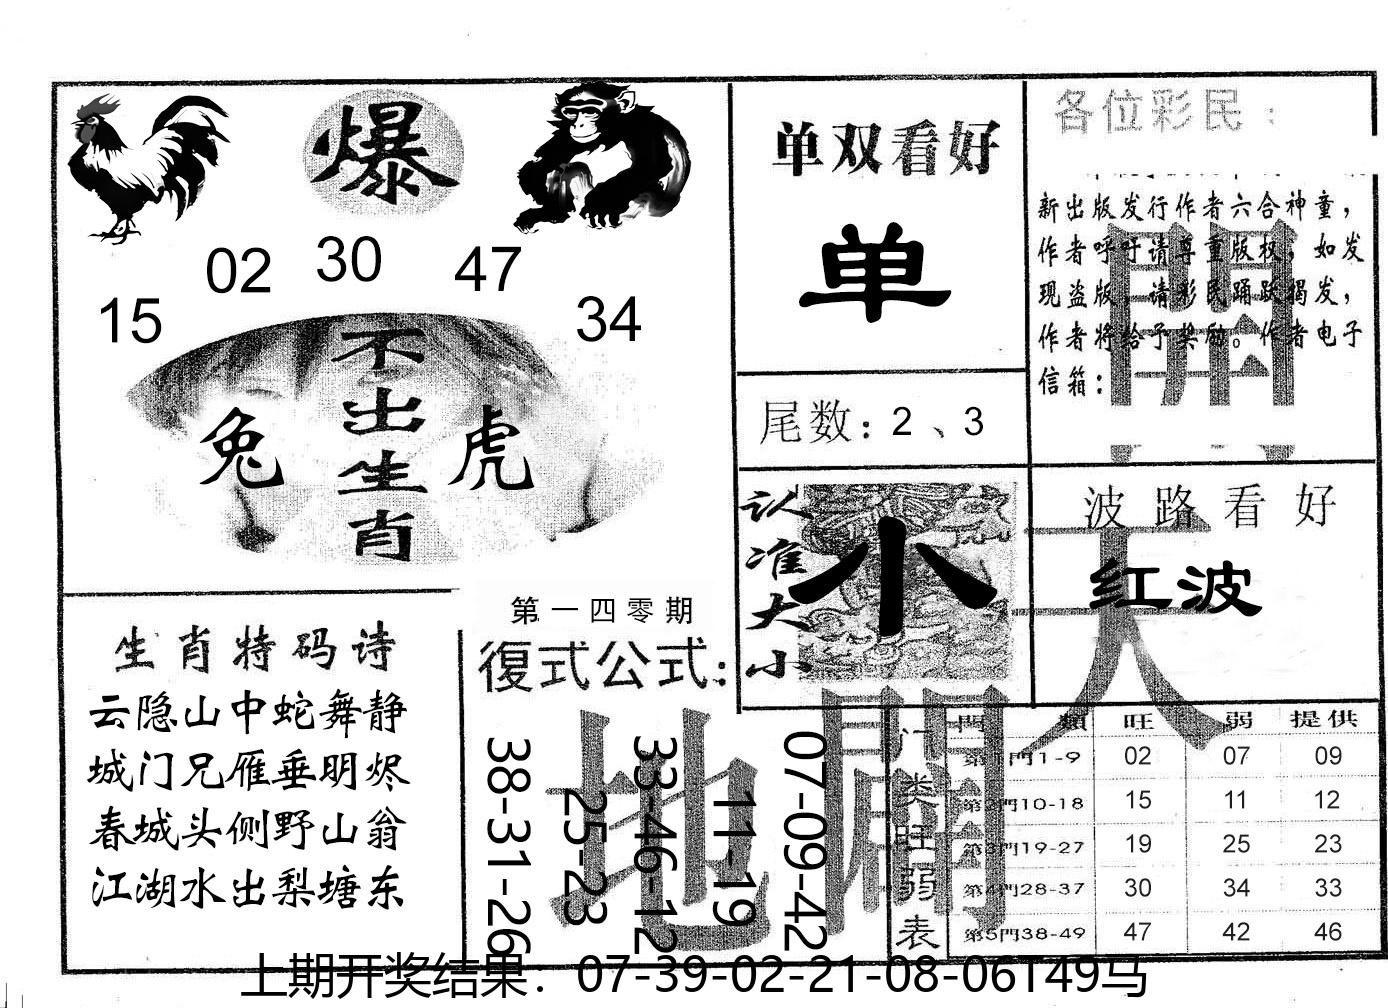 爆
02 30 47
15 34
不出生肖
兔 虎
单双看好
单
尾数：2、3
各位彩民：
新出版发行作者六合神童，
作者呼吁请尊重版权，如发
现盗版，请彩民踊跃揭发，
作者将给予奖励。作者电子
信箱：
開
认准大小
小
波路看好
红波
天
生肖特码诗
云隐山中蛇舞静
城门兄雁垂明烬
春城头侧野山翁
江湖水出梨塘东
第一四零期
復式公式：
地
闢
38-31-26
25-23
33-46-12
11-19
07-09-42
门类旺弱表
門類 旺 弱 提供
第1門1-9 02 07 09
第2門10-18 15 11 12
第3門19-27 19 25 23
第4門28-37 30 34 33
第5門38-49 47 42 46
上期开奖结果：07-39-02-21-08-06T49马